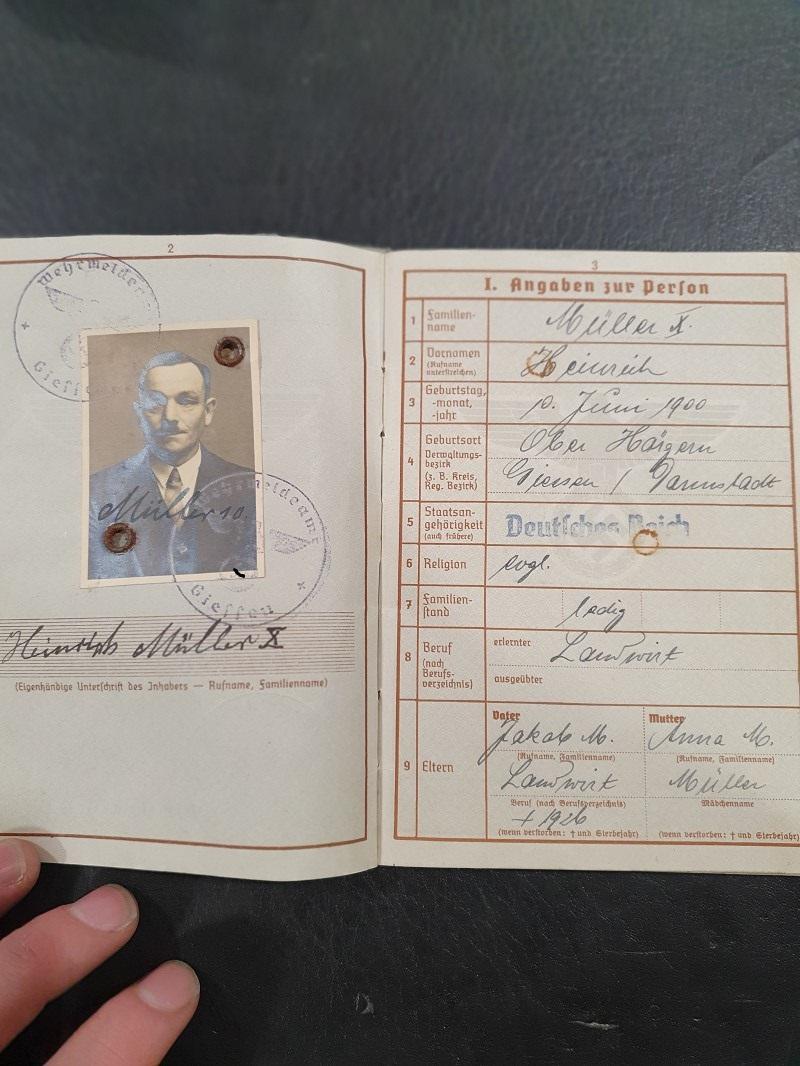 2
Wehrmeldeamt
Gieffen
Müller 10.
Wehrmeldeamt
Gieffen
Heinrich Müller X
(Eigenhändige Unterschrift des Inhabers — Rufname, Familienname)
3
I. Angaben zur Person
1 Familien-name Müller X.
2 Vornamen (Rufname unterstreichen) Heinrich
3 Geburtstag, -monat, -jahr 10. Juni 1900
4 Geburtsort Ober Hörgern
Verwaltungs-bezirk (z. B. Kreis, Reg. Bezirk) Giessen / Darmstadt
5 Staatsan-gehörigkeit (auch frühere) Deutsches Reich
6 Religion evgl.
7 Familien-stand ledig
8 Beruf (nach Berufs-verzeichnis) erlernter Landwirt
ausgeübter
9 Eltern
Vater Mutter
Jakob M. Anna M.
(Rufname, Familienname) (Rufname, Familienname)
Landwirt Müller
Beruf (nach Berufsverzeichnis) Mädchenname
† 1926
(wenn verstorben: † und Sterbejahr) (wenn verstorben: † und Sterbejahr)